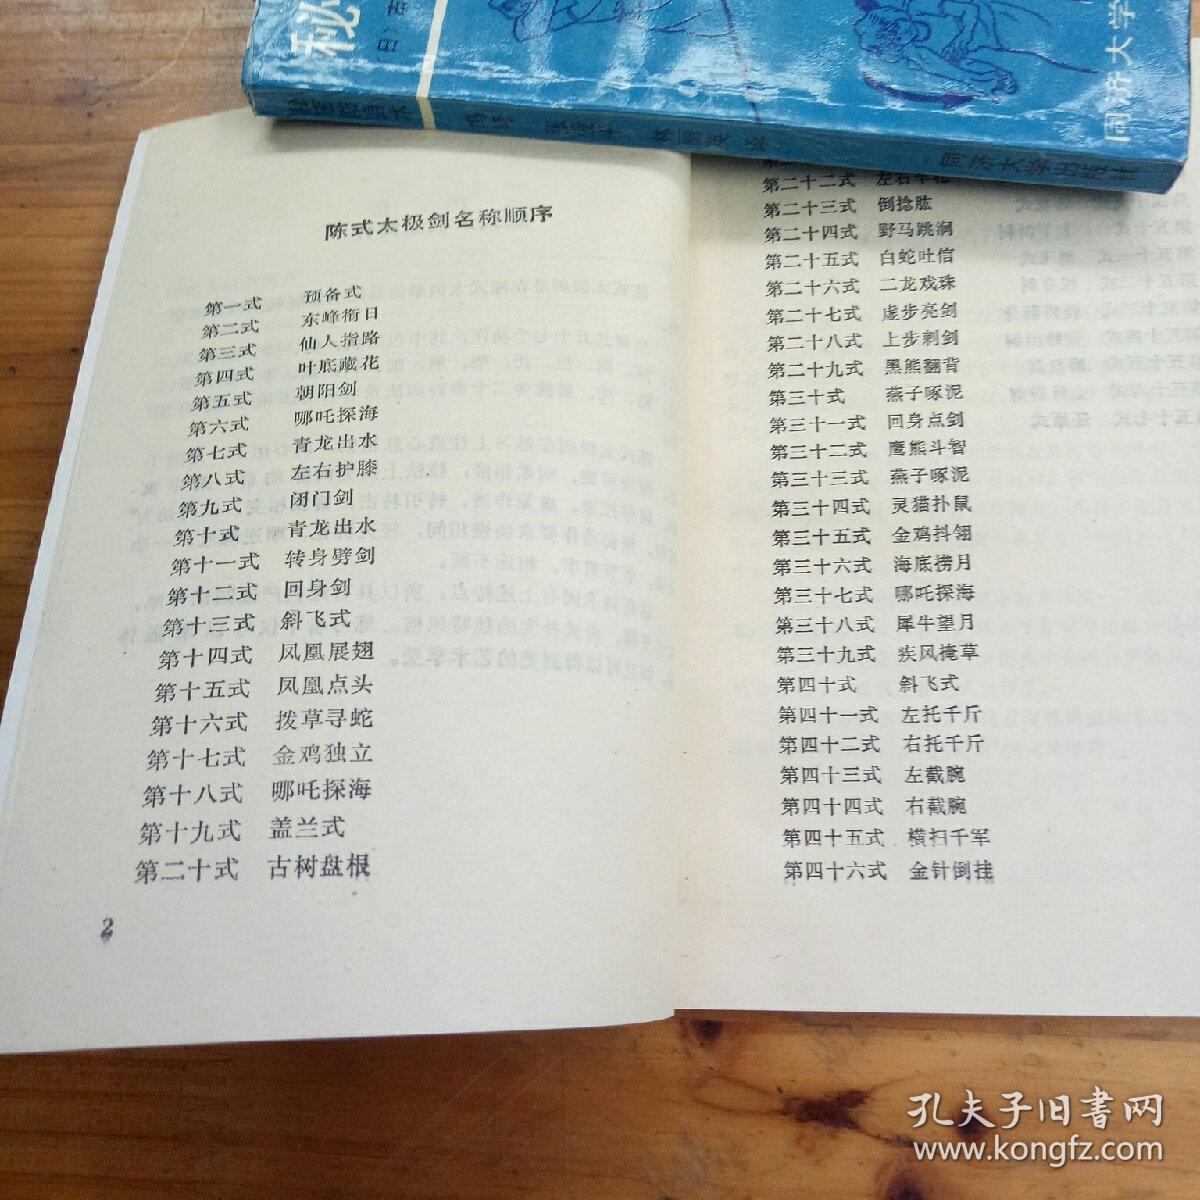 秘
同济大学
同济大学出版社
陈式太极剑名称顺序
第一式 预备式
第二式 东峰衔日
第三式 仙人指路
第四式 叶底藏花
第五式 朝阳剑
第六式 哪吒探海
第七式 青龙出水
第八式 左右护膝
第九式 闭门剑
第十式 青龙出水
第十一式 转身劈剑
第十二式 回身剑
第十三式 斜飞式
第十四式 凤凰展翅
第十五式 凤凰点头
第十六式 拨草寻蛇
第十七式 金鸡独立
第十八式 哪吒探海
第十九式 盖兰式
第二十式 古树盘根
2
第二十二式 左右车轮
第二十三式 倒捻肱
第二十四式 野马跳涧
第二十五式 白蛇吐信
第二十六式 二龙戏珠
第二十七式 虚步亮剑
第二十八式 上步刺剑
第二十九式 黑熊翻背
第三十式 燕子啄泥
第三十一式 回身点剑
第三十二式 鹰熊斗智
第三十三式 燕子啄泥
第三十四式 灵猫扑鼠
第三十五式 金鸡抖翎
第三十六式 海底捞月
第三十七式 哪吒探海
第三十八式 犀牛望月
第三十九式 疾风掩草
第四十式 斜飞式
第四十一式 左托千斤
第四十二式 右托千斤
第四十三式 左截腕
第四十四式 右截腕
第四十五式 横扫千军
第四十六式 金针倒挂
孔夫子旧书网
www.kongfz.com